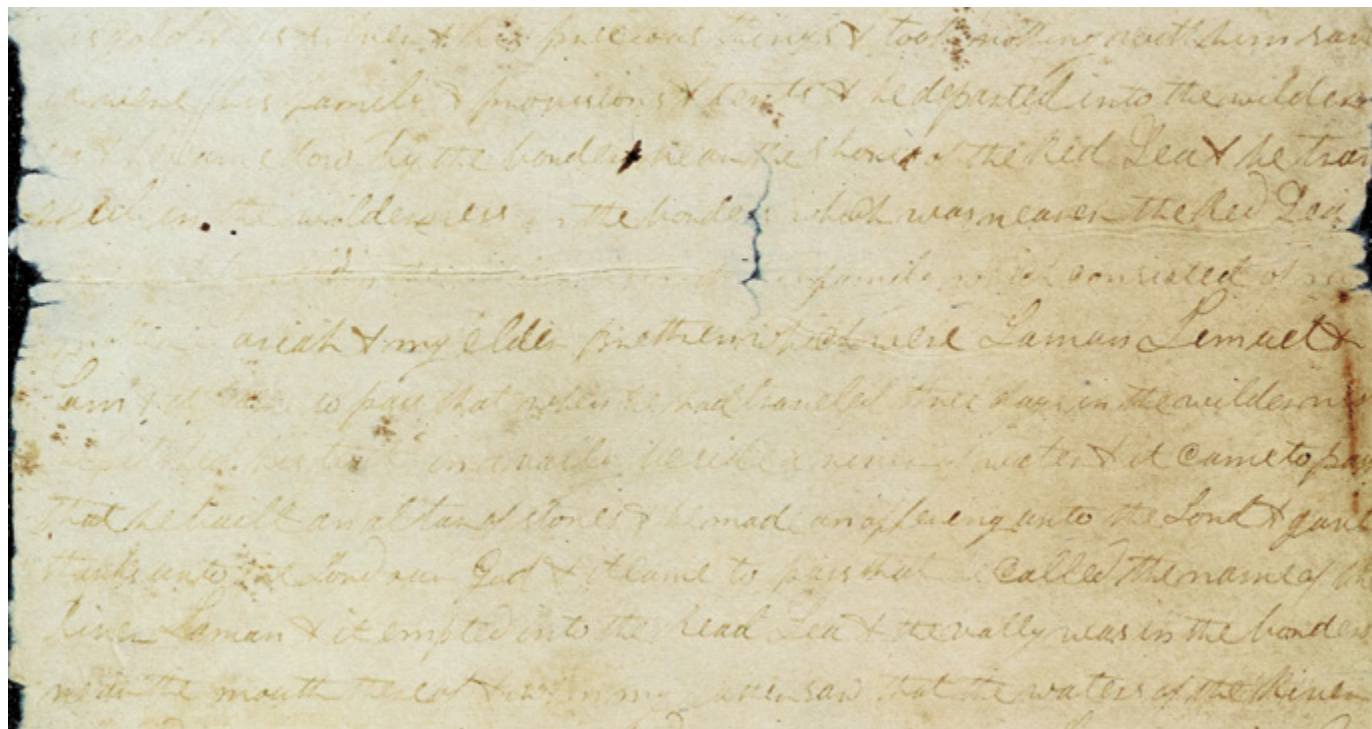 his gold & his silver & his precious things & took nothing with him save
it were his family & provisions & tents & he departed into the wilderne
& he came down by the borders near the shore of the Red Sea & he trav
in the wilderness in the borders which was nearer the Red Sea
family which consisted of my
mother Sariah & my elder brethren which were Laman Lemuel &
Sam & it came to pass that when he had traveled three days in the wilderness
he pitched his tent in a vally beside a river of water & it came to pass
that he built an altar of stones & he mad an offering unto the Lord & gave
thanks unto the Lord our God & it came to pass that he called the name of the
River Laman & it empted into the Read Sea & the vally was in the borders
near the mouth thereof & when my father saw that the waters of the River